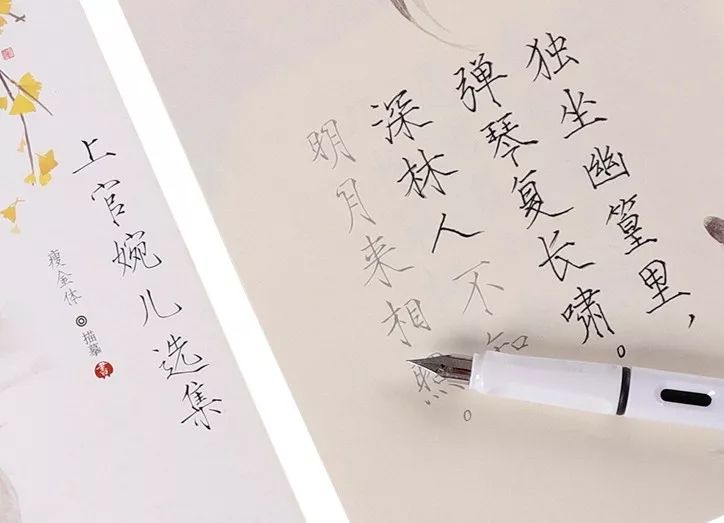 上官婉儿选集
瘦金体◎描摹
書
独坐幽篁里，
弹琴复长啸。
深林人不知
明月来相照。